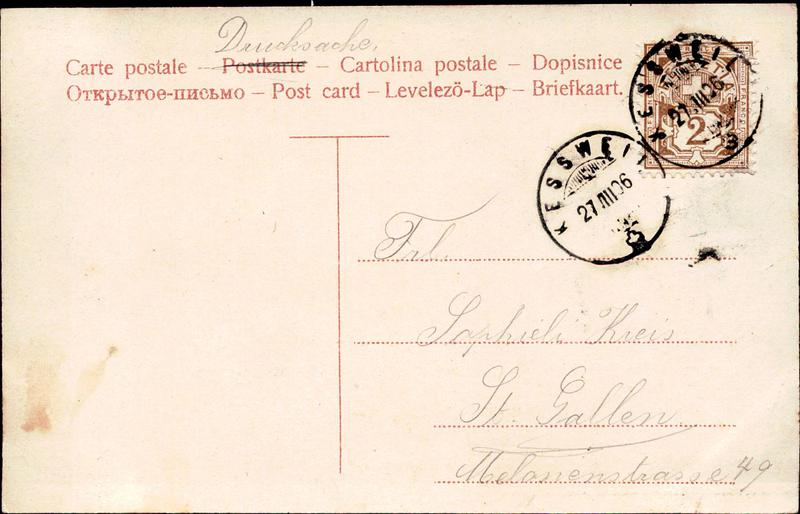 Drucksache.
Carte postale – Postkarte – Cartolina postale – Dopisnice
Открытое-письмо – Post card – Levelező-Lap – Briefkaart.
KESSWEIL
27.III.06
2
FRANCO
KESSWEIL
27.III.06
Frl.
Sophieli Kreis
St. Gallen.
Melonenstrasse 49